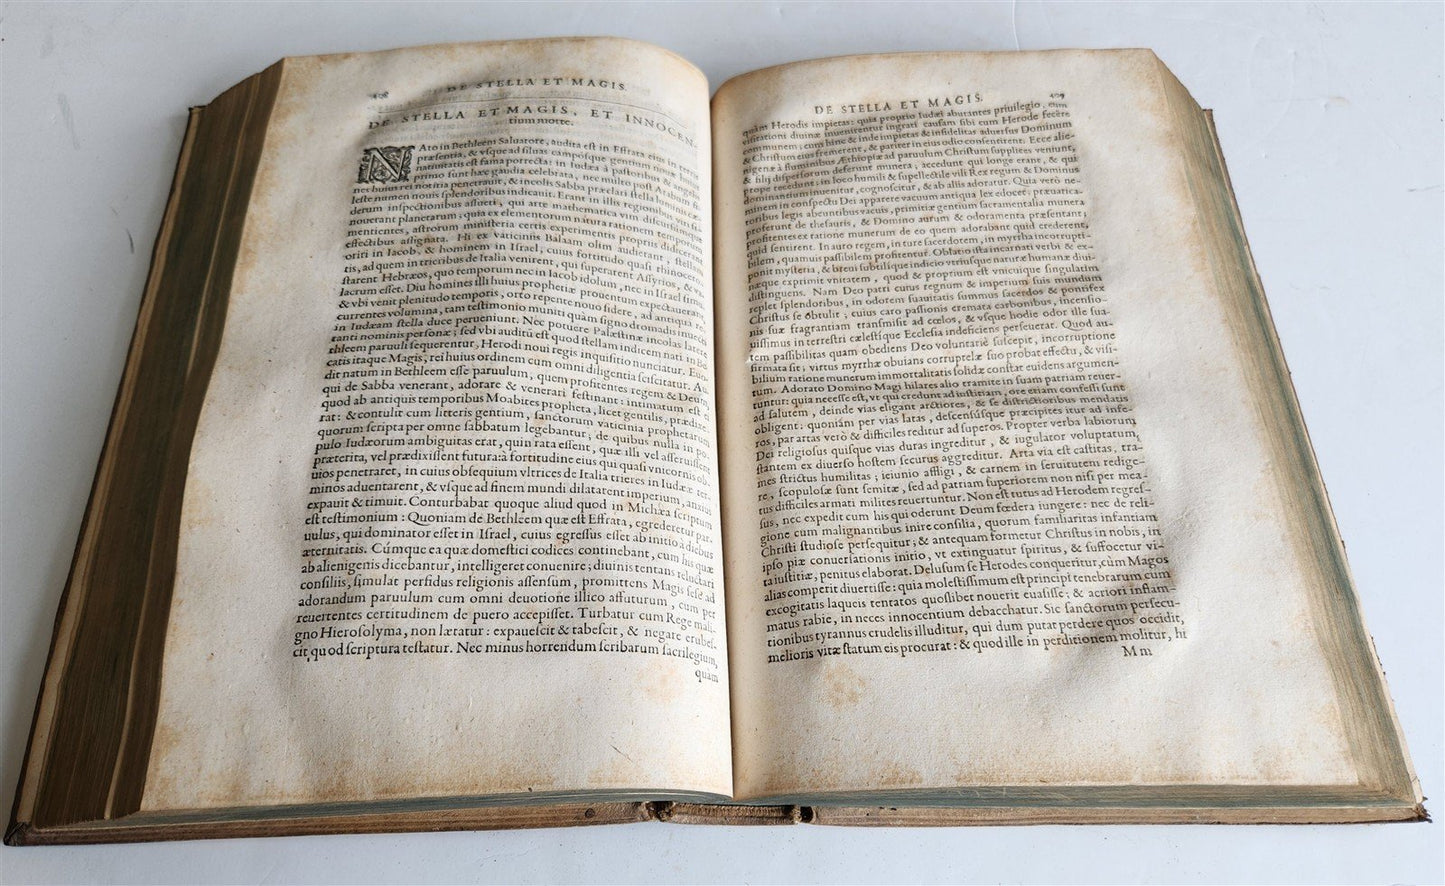 408 DE STELLA ET MAGIS.
DE STELLA ET MAGIS, ET INNOCEN-
tium morte.
NAto in Bethleem Saluatore, audita est in Effrata eius in carne
præsentia, & vsque ad siluas campósque gentium
natiuitatis est fama porrecta: in Iudæa à pastoribus & angelis
primo sunt hæc gaudia celebrata, nec multo post Arabum fi-
nes huius rei notitia penetrauit, & incolis Sabba præclari stella luminis cæ-
leste numen nouis splendoribus indicauit. Erant in illis regionibus viri si-
derum inspectionibus assueti, qui arte mathematica vim discursúmque
nouerant planetarum; quia ex elementorum natura rationem temporum
mentientes, astrorum ministeria certis experimentis propriis didicerant
effectibus assignata. Hi ex vaticiniis Balaam olim audierant, stellam
oriri in Iacob, & hominem in Israel, cuius fortitudo quasi rhinocero-
tis, ad quem in trieribus de Italia venirent, qui superarent Assyrios, & va-
starent Hebræos, quo temporum nec in Iacob idolum, nec in Israel simu-
lacrum esset. Diu homines illi huius prophetiæ prouentum expectauerant,
& vbi venit plenitudo temporis, orto repente nouo sidere, ad antiqua re-
currentes volumina, tam testimonio muniti quàm signo dromadis inuecti
in Iudæam stella duce perueniunt. Nec potuere Palæstinæ incolas latere
tanti nominis personæ; sed vbi auditũ est quod stellam indicem nati in Be-
thleem paruuli sequerentur, Herodi noui regis inquisitio nunciatur. Euo-
catis itaque Magis, rei huius ordinem cum omni diligentia sciscitatur. Au-
dit natum in Bethleem esse paruulum, quem profitentes regem & Deum,
qui de Sabba venerant, adorare & venerari festinant: intimatum est ei
quod ab antiquis temporibus Moabites propheta, licet gentilis, prædixe-
rat: & contulit cum litteris gentium, sanctorum vaticinia prophetarum
quorum scripta per omne sabbatum legebantur, de quibus nulla in po-
pulo Iudæorum ambiguitas erat, quin rata essent, quæ illi vel asseruissent
præterita, vel prædixissent futura: à fortitudine eius qui quasi vnicornis ob-
uios penetraret, in cuius obsequium vltrices de Italia trieres in Iudææ ter-
minos aduentarent, & vsque ad finem mundi dilatarent imperium, anxius
expauit & timuit. Conturbabat quoque aliud quod in Michæa scriptum
est testimonium: Quoniam de Bethleem quæ est Effrata, egrederetur par-
uulus, qui dominator esset in Israel, cuius egressus esset ab initio à diebus
æternitatis. Cúmque ea quæ domestici codices continebant, cum his quæ
ab alienigenis dicebantur, intelligeret conuenire; diuinis tentans reluctari
consiliis, simulat perfidus religionis assensum, promittens Magis sese ad
adorandum paruulum cum omni deuotione illico affuturum, cum per
reuertentes certitudinem de puero accepisset. Turbatur cum Rege mali-
gno Hierosolyma, non lætatur: expauescit & tabescit, & negare erubes-
cit quod scriptura testatur. Nec minus horrendum scribarum sacrilegium,
quàm
DE STELLA ET MAGIS. 409
quàm Herodis impietas: quia proprio Iudæi abutantes priuilegio, cum
visitationi diuinæ inuenirentur ingrati causam sibi cum Herode fecêre
communem; eum hinc & inde impietas & infidelitas aduersus Dominum
& Christum eius fremerent, & pariter in eius odio consentirent. Ecce alie-
nigenæ à fluminibus Æthiopiæ ad paruulum Christum supplices veniunt,
& filij dispersorum deferunt munera; accedunt qui longe erant, & qui
prope recedunt: in loco humili & supellectile vili Rex regum & Dominus
dominantium inuenitur, cognoscitur, & ab aliis adoratur. Quia verò ne-
minem in conspectu Dei apparere vacuum antiqua lex edocet: præuatica-
toribus legis abeuntibus vacuis, primitiæ gentium sacramentalia munera
proferunt de thesauris, & Domino aurum & odoramenta præsentant,
profitentes ex ratione munerum de eo quem adorabant quid crederent,
quid sentirent. In auro regem, in ture sacerdotem, in myrrha incorrupti-
bilem, quamuis passibilem profitentur. Oblatio ista incarnati verbi & ex-
ponit mysteria, & breui subtilique indicio vtriusque naturæ humanæ diui-
næque exprimit vnitatem, quod & proprium est vnicuique singulatim
distinguens. Nam Deo patri cuius regnum & imperium suis mundum
replet splendoribus, in odorem suauitatis summus sacerdos & pontifex
Christus se obtulit; cuius caro passionis cremata carbonibus, incensio-
nis suæ fragrantiam transmisit ad cœlos, & vsque hodie odor ille sua-
uissimus in terrestri cælestique Ecclesia indeficiens perseuerat. Quod au-
tem passibilitas quam obediens Deo voluntariè suscepit, incorruptione
firmata sit; virtus myrrhæ obuians corruptelæ suo probat effectu, & visi-
bilium ratione munerum immortalitatis solidæ constat euidens argumen-
tum. Adorato Domino Magi hilares alio tramite in suam patriam reuer-
tuntur: quia necesse est, vt qui credunt ad iustitiam, ore etiam confessi sunt
ad salutem, deinde vias eligant arctiores, & se districtioribus mendatis
obligent: quoniàm per vias latas, descensúsque præcipites itur ad infe-
ros, par artas verò & difficiles reditur ad superos. Propter verba labiorum
Dei religiosus quisque vias duras ingreditur, & iugulator voluptatum,
stantem ex diuerso hostem securus aggreditur. Arta via est castitas, tra-
mes strictus humilitas; ieiunio affligi, & carnem in seruitutem redige-
re, scopulosæ sunt semitæ, sed ad patriam superiorem non nisi per mea-
tus difficiles armati milites reuertuntur. Non est tutus ad Herodem regres-
sus, nec expedit cum his qui oderunt Deum fœdera iungere: nec de reli-
gione cum malignantibus inire consilia, quorum familiaritas infantiam
Christi studiose persequitur; & antequam formetur Christus in nobis, in
ipso piæ conuersationis initio, vt extinguatur spiritus, & suffocetur vi-
ta iustitiæ, penitus elaborat. Delusum se Herodes conqueritur, cùm Magos
alias comperit diuertisse: quia molestissimum est principi tenebrarum cum
excogitatis laqueis tentatos quoslibet nouerit euasisse; & acriori inflam-
matus rabie, in neces innocentium debacchatur. Sic sanctorum persecu-
tionibus tyrannus crudelis illuditur, qui dum putat perdere quos occidit,
melioris vitæ statum eis procurat: & quod ille in perditionem molitur, hi
Mm